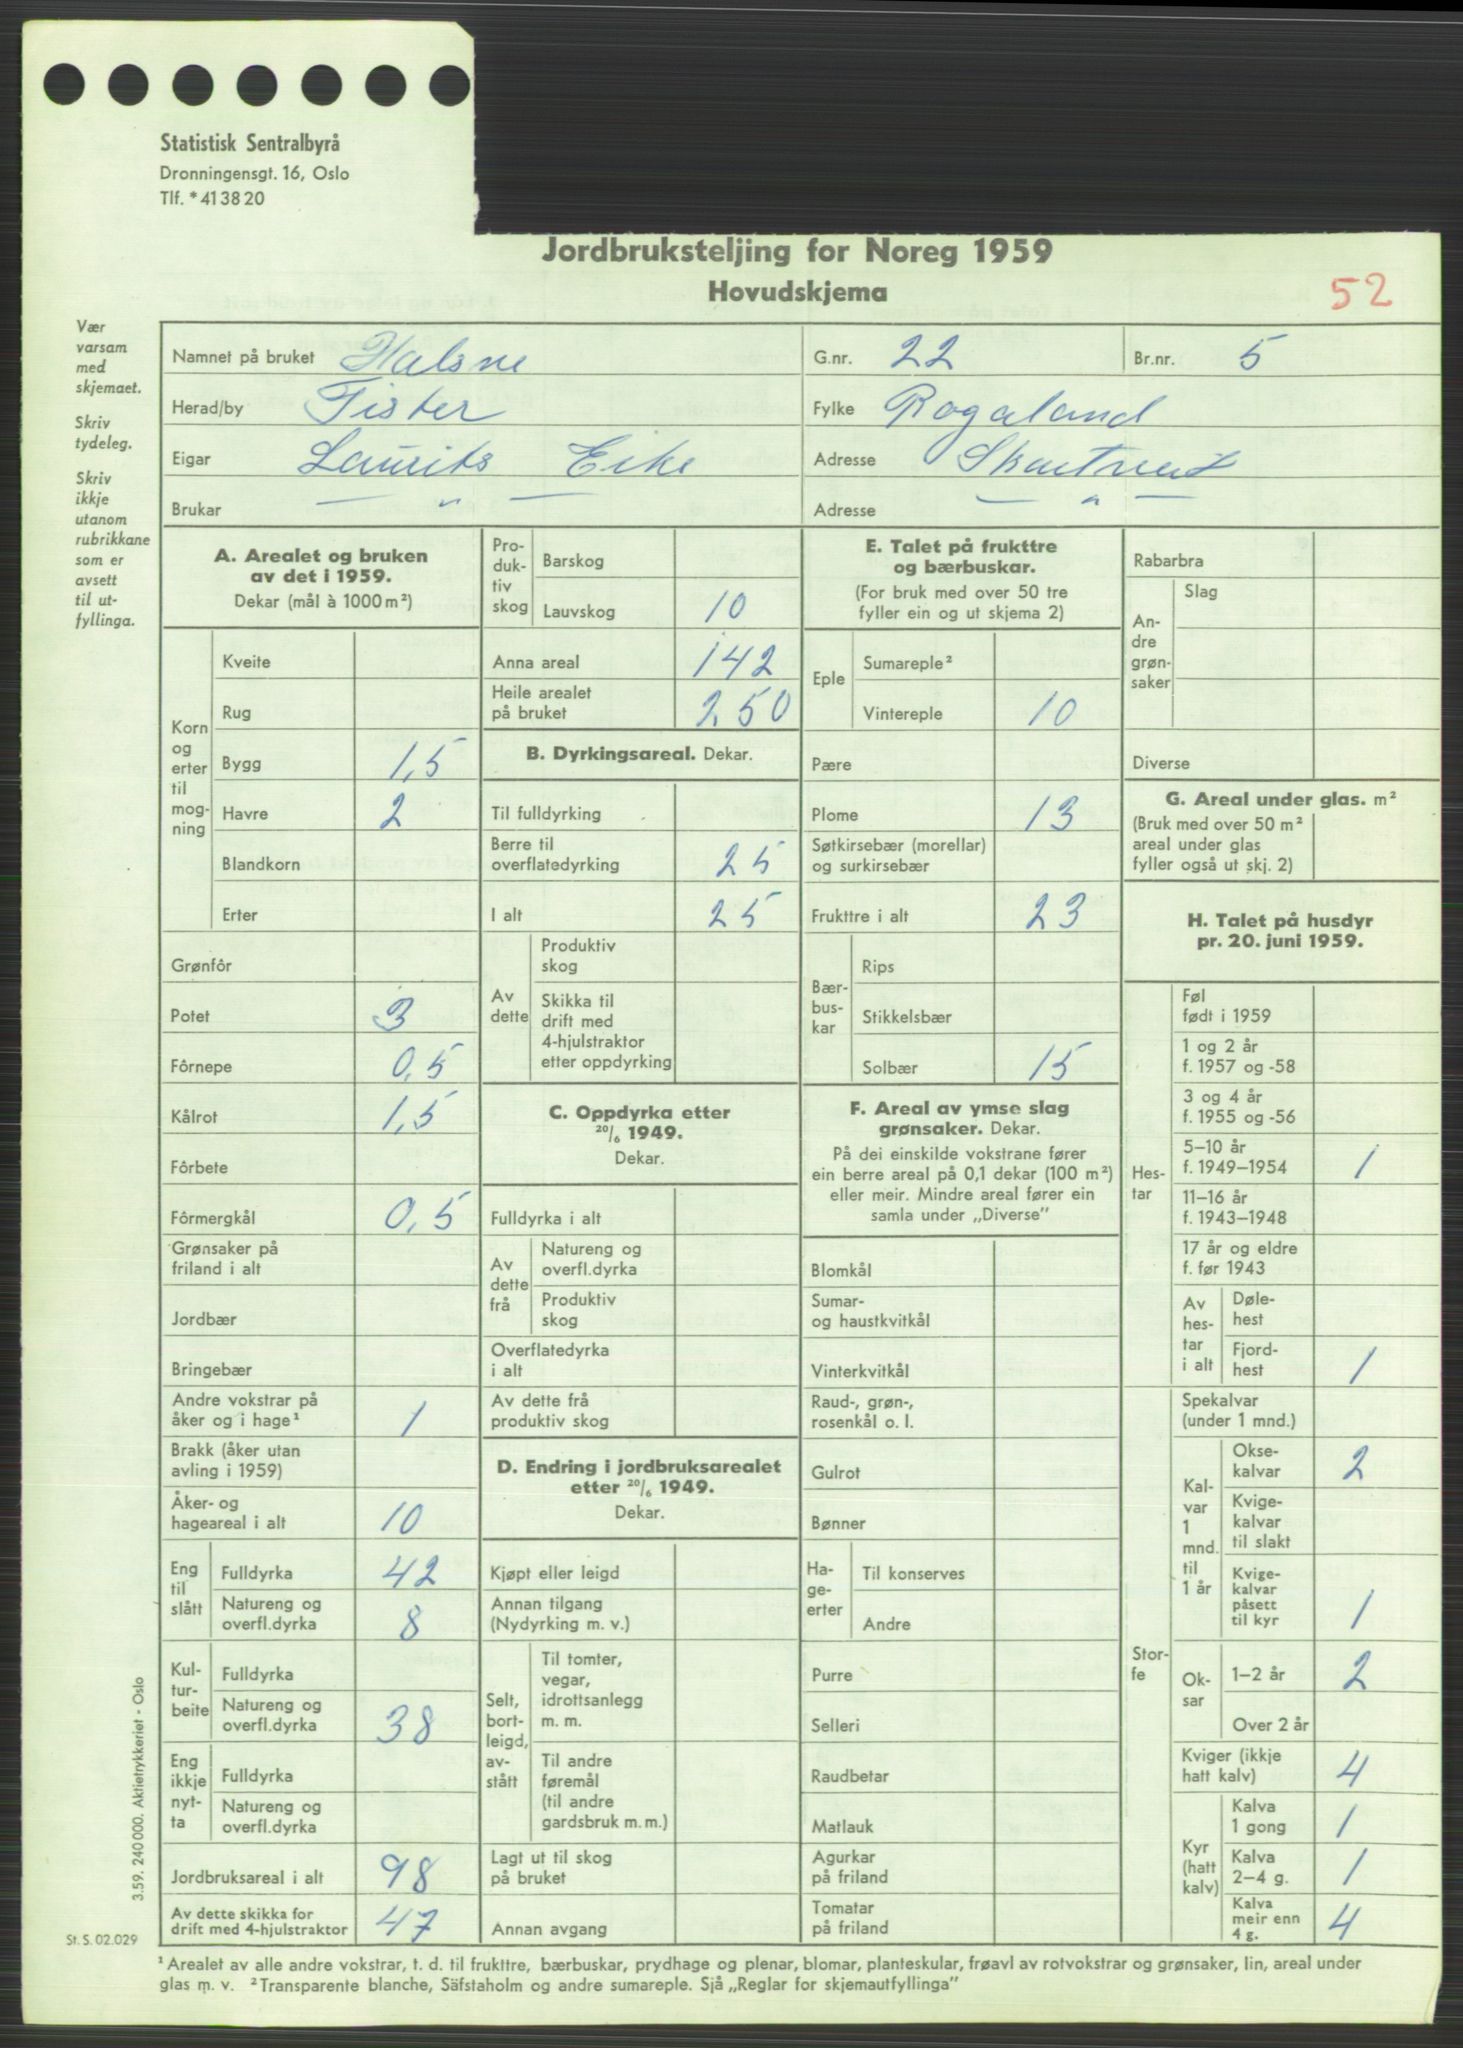 Statistisk Sentralbyrå
Dronningensgt. 16, Oslo
Tlf. *41 38 20
Jordbruksteljing for Noreg 1959
Hovudskjema
52
Vær
varsam
med
skjemaet.
Skriv
tydeleg.
Skriv
ikkje
utanom
rubrikkane
som er
avsett
til ut-
fyllinga.
Namnet på bruket Halsne G.nr. 22 Br.nr. 5
Herad/by Fister Fylke Rogaland
Eigar Laurits Eike Adresse
Brukar — " — Adresse — " —
A. Arealet og bruken
av det i 1959.
Dekar (mål à 1000 m²)
Korn
og
erter
til
mog-
ning
Kveite
Rug
Bygg 1,5
Havre 2
Blandkorn
Erter
Grønfôr
Potet 3
Fôrnepe 0,5
Kålrot 1,5
Fôrbete
Fôrmergkål 0,5
Grønsaker på
friland i alt
Jordbær
Bringebær
Andre vokstrar på
åker og i hage¹ 1
Brakk (åker utan
avling i 1959)
Åker- og
hageareal i alt 10
Eng
til
slått
Fulldyrka 42
Natureng og
overfl.dyrka 8
Kul-
tur-
beite
Fulldyrka
Natureng og
overfl.dyrka 38
Eng
ikkje
nyt-
ta
Fulldyrka
Natureng og
overfl.dyrka
Jordbruksareal i alt 98
Av dette skikka for
drift med 4-hjulstraktor 47
Pro-
duk-
tiv
skog
Barskog
Lauvskog 10
Anna areal 142
Heile arealet
på bruket 250
B. Dyrkingsareal. Dekar.
Til fulldyrking
Berre til
overflatedyrking 25
I alt 25
Av
dette
Produktiv
skog
Skikka til
drift med
4-hjulstraktor
etter oppdyrking
C. Oppdyrka etter
20/6 1949.
Dekar.
Fulldyrka i alt
Av
dette
frå
Natureng og
overfl.dyrka
Produktiv
skog
Overflatedyrka
i alt
Av dette frå
produktiv skog
D. Endring i jordbruksarealet
etter 20/6 1949.
Dekar.
Kjøpt eller leigd
Annan tilgang
(Nydyrking m. v.)
Selt,
bort-
leigd,
av-
stått
Til tomter,
vegar,
idrottsanlegg
m. m.
Til andre
føremål
(til andre
gardsbruk m. m.)
Lagt ut til skog
på bruket
Annan avgang
E. Talet på frukttre
og bærbuskar.
(For bruk med over 50 tre
fyller ein og ut skjema 2)
Eple
Sumareple²
Vintereple 10
Pære
Plome 13
Søtkirsebær (morellar)
og surkirsebær
Frukttre i alt 23
Bær-
bus-
kar
Rips
Stikkelsbær
Solbær 15
F. Areal av ymse slag
grønsaker. Dekar.
På dei einskilde vokstrane fører
ein berre areal på 0,1 dekar (100 m²)
eller meir. Mindre areal fører ein
samla under „Diverse”
Blomkål
Sumar-
og haustkvitkål
Vinterkvitkål
Raud-, grøn-,
rosenkål o. l.
Gulrot
Bønner
Ha-
ge-
erter
Til konserves
Andre
Purre
Selleri
Raudbetar
Matlauk
Agurkar
på friland
Tomatar
på friland
Rabarbra
An-
dre
grøn-
saker
Slag
Diverse
G. Areal under glas. m²
(Bruk med over 50 m²
areal under glas
fyller også ut skj. 2)
H. Talet på husdyr
pr. 20. juni 1959.
Hes-
tar
Føl
født i 1959
1 og 2 år
f. 1957 og -58
3 og 4 år
f. 1955 og -56
5–10 år
f. 1949–1954 1
11–16 år
f. 1943–1948
17 år og eldre
f. før 1943
Av
hes-
tar
i alt
Døle-
hest
Fjord-
hest 1
Stor-
fe
Spekalvar
(under 1 mnd.)
Kal-
var
1
mnd.
til
1 år
Okse-
kalvar 2
Kvige-
kalvar
til slakt
Kvige-
kalvar
påsett
til kyr 1
Ok-
sar
1–2 år 2
Over 2 år
Kviger (ikkje
hatt kalv) 4
Kyr
(hatt
kalv)
Kalva
1 gong 1
Kalva
2–4 g. 1
Kalva
meir enn
4 g. 4
3.59. 240 000. Aktietrykkeriet - Oslo
St. S. 02.029
¹ Arealet av alle andre vokstrar, t. d. til frukttre, bærbuskar, prydhage og plenar, blomar, planteskular, frøavl av rotvokstrar og grønsaker, lin, areal under
glas m. v. ² Transparente blanche, Säfstaholm og andre sumareple. Sjå „Reglar for skjemautfyllinga”